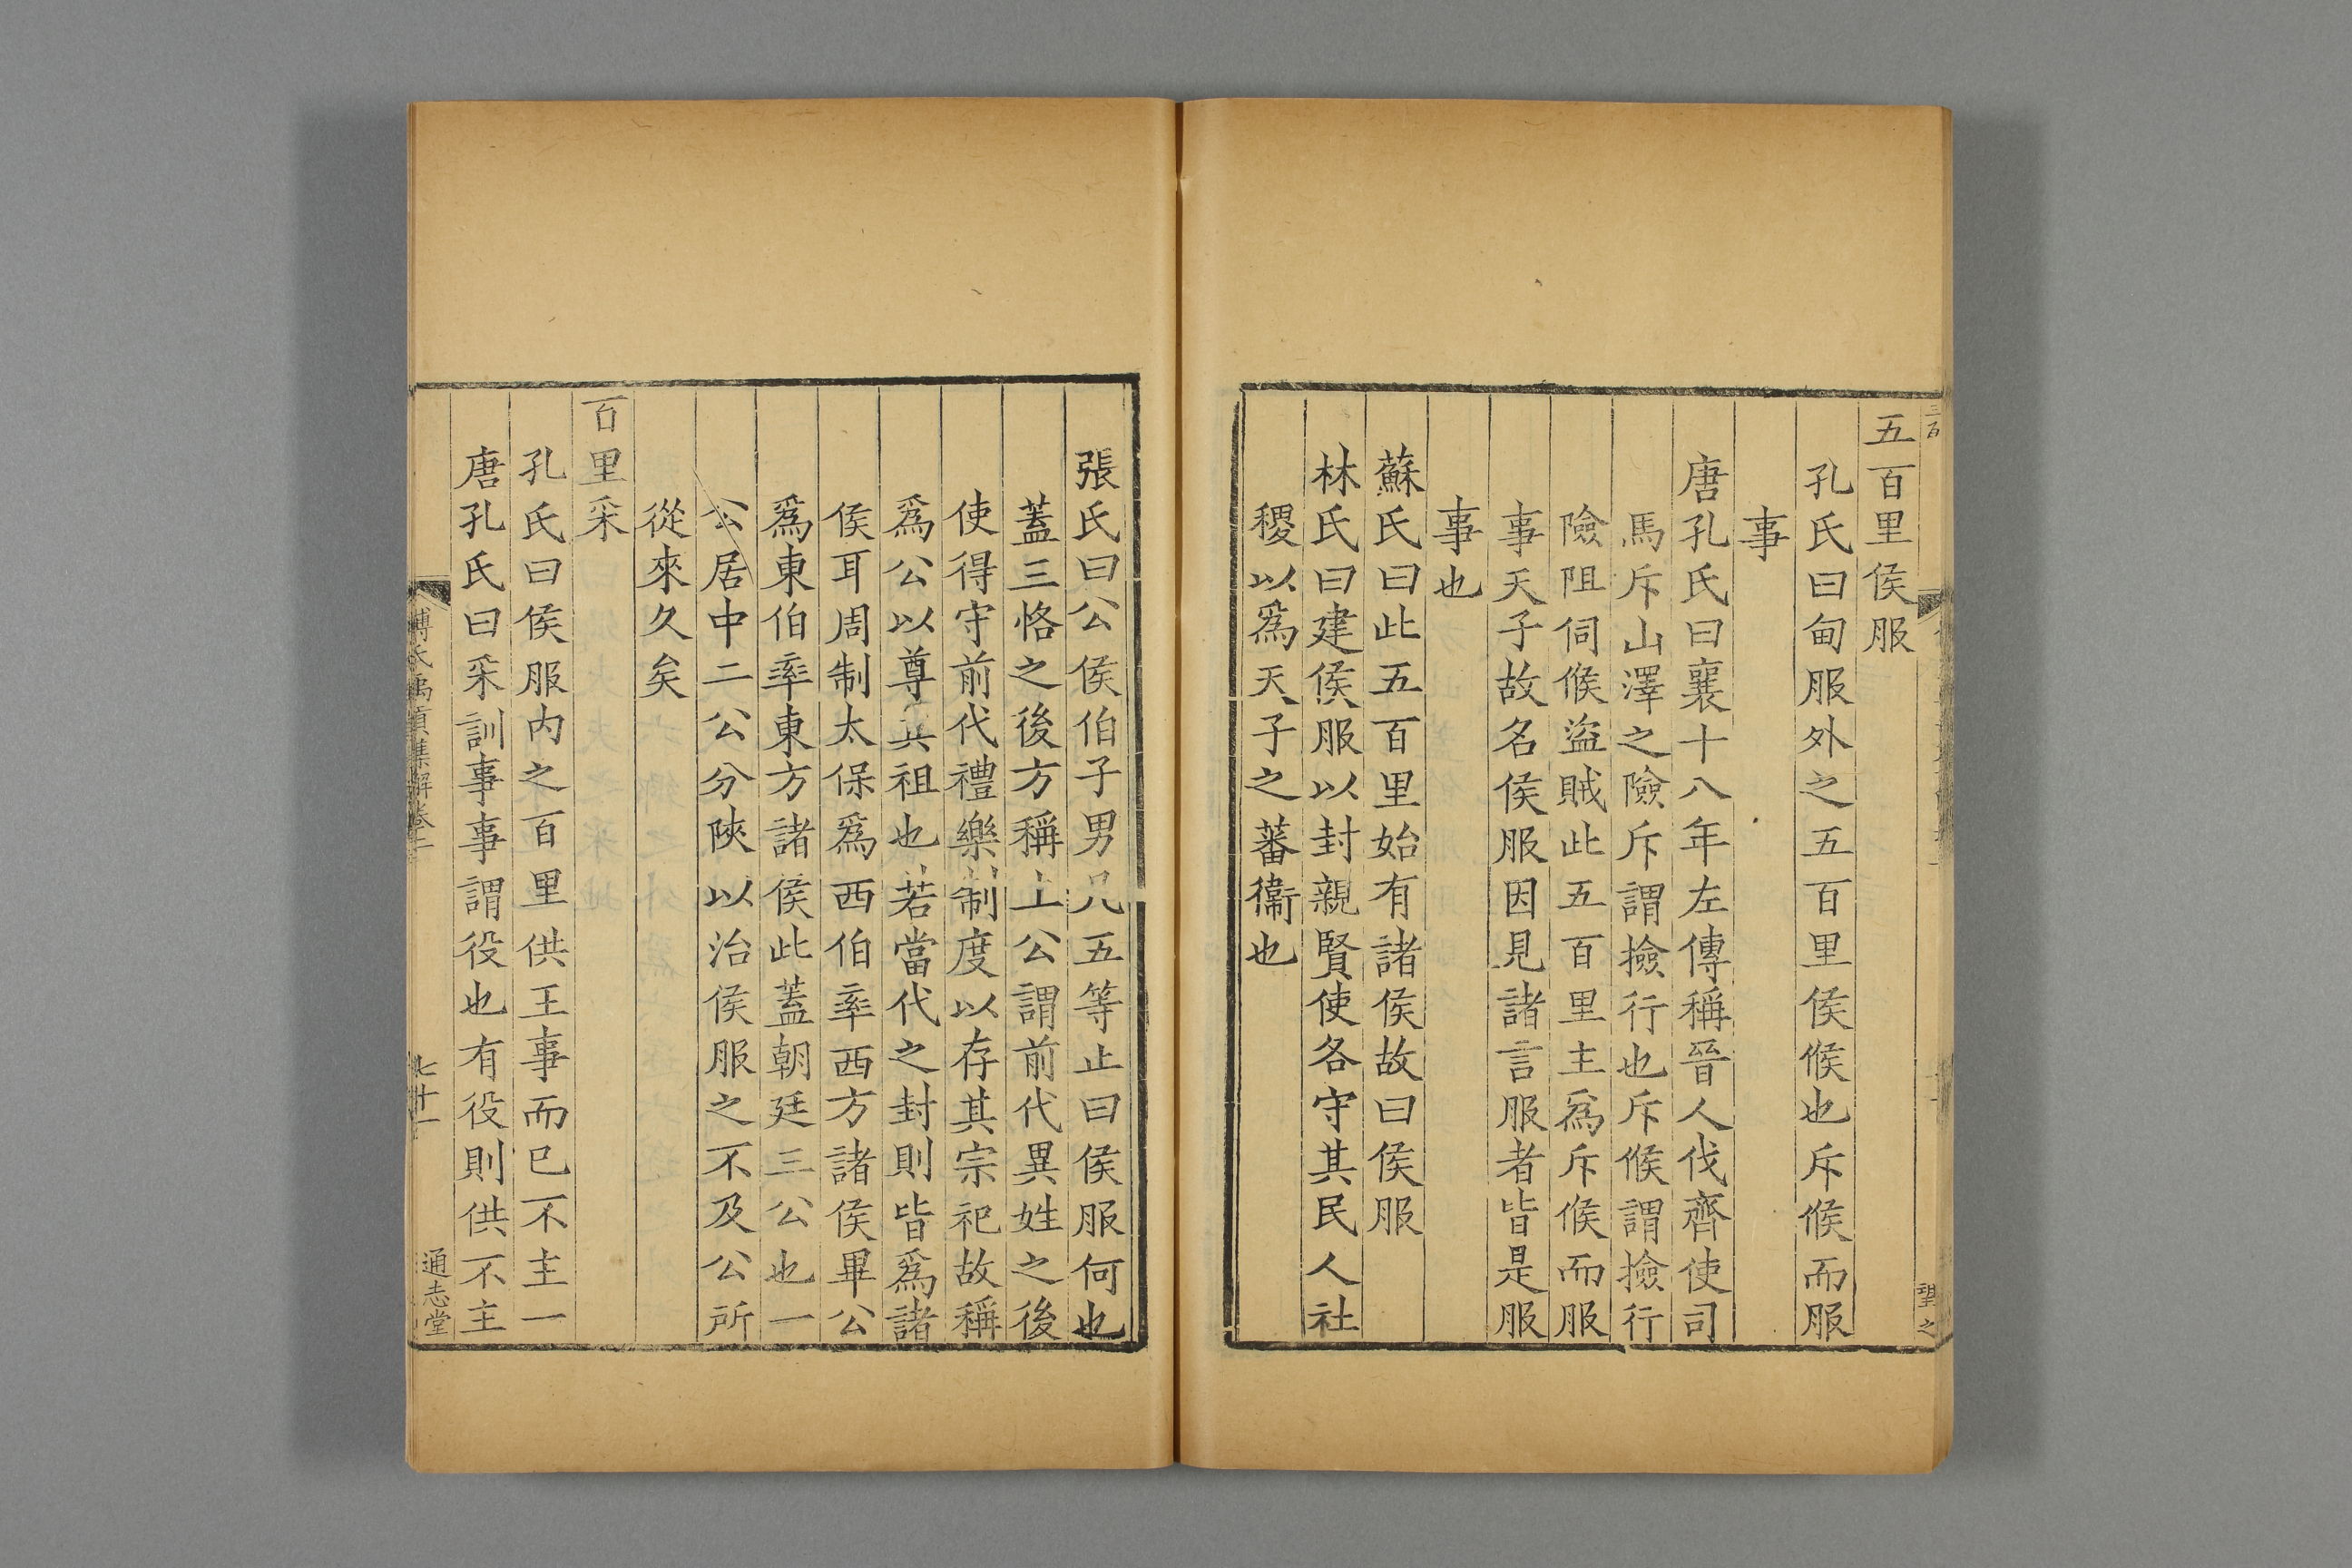 五百里侯服
孔氏曰甸服外之五百里侯候也斥候而服
事
唐孔氏曰襄十八年左傳稱晉人伐齊使司
馬斥山澤之險斥謂撿行也斥候謂撿行
險阻伺候盜賊此五百里主爲斥候而服
事天子故名侯服因見諸言服者皆是服
事也
蘇氏曰此五百里始有諸侯故曰侯服
林氏曰建侯服以封親賢使各守其民人社
稷以爲天子之蕃衞也
望之
張氏曰公侯伯子男凡五等止曰侯服何也
蓋三恪之後方稱上公謂前代異姓之後
使得守前代禮樂制度以存其宗祀故稱
爲公以尊其祖也若當代之封則皆爲諸
侯耳周制太保爲西伯率西方諸侯畢公
爲東伯率東方諸侯此蓋朝廷三公也一
公居中二公分陝以治侯服之不及公所
從來久矣
百里采
孔氏曰侯服内之百里供王事而已不主一
唐孔氏曰采訓事事謂役也有役則供不主
傅氏禹貢集解卷二
七十一
通志堂